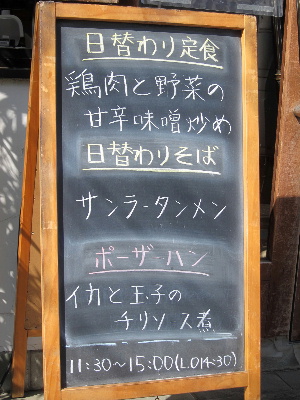 日替わり定食
鶏肉と野菜の
甘辛味噌炒め
日替わりそば
サンラータンメン
ポーザーハン
イカと玉子の
チリソース煮
11:30～15:00(L.O14:30)